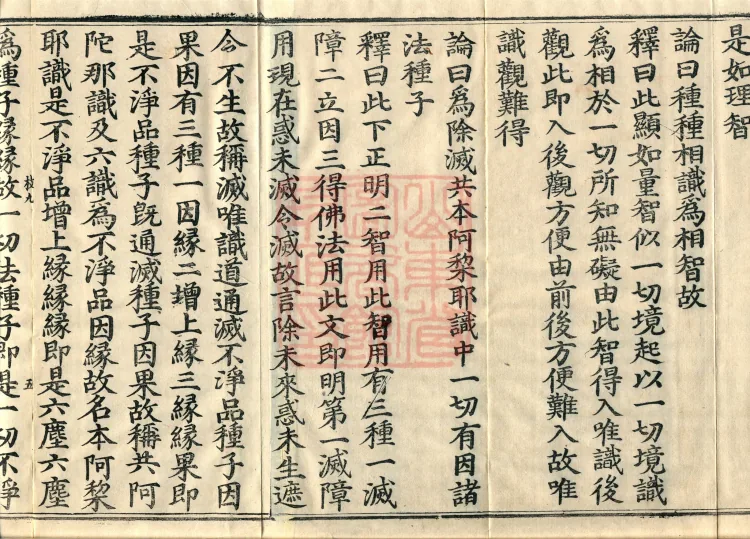 是如理智
論曰種種相識爲相智故
釋曰此顯如量智似一切境起以一切境識
爲相於一切所知無礙由此智得入唯識後
觀此即入後觀方便由前後方便難入故唯
識觀難得
論曰爲除滅共本阿棃耶識中一切有因諸
法種子
釋曰此下正明二智用此智用有三種一滅
障二立因三得佛法用此文即明第一滅障
用現在惑未滅令滅故言除未來惑未生遮
令不生故稱滅唯識道通滅不淨品種子因
果因有三種一因緣二增上緣三緣緣果即
是不淨品種子旣通滅種子因果故稱共阿
陀那識及六識爲不淨品因緣故名本阿棃
耶識是不淨品增上緣緣緣即是六塵六塵
爲種子緣緣故一切法種子即是一切不淨
枝九
五